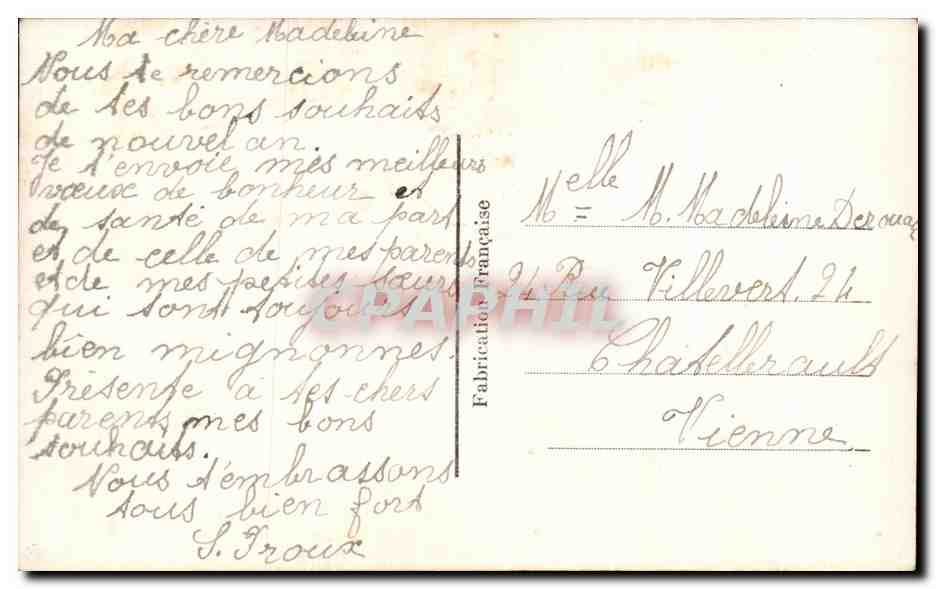 Ma chère Madeleine
Nous te remercions
de tes bons souhaits
de nouvel an.
Je t'envoie mes meilleurs
vœux de bonheur et
de santé de ma part
et de celle de mes parents
et de mes petites sœurs
qui sont toujours
bien mignonnes.
Présente à tes chers
parents mes bons
souhaits.
Nous t'embrassons
tous bien fort
S. Troux
Fabrication Française
CPAPHIL
Melle M. Madeleine
24 Rue Villevert. 24
Châtellerault
Vienne